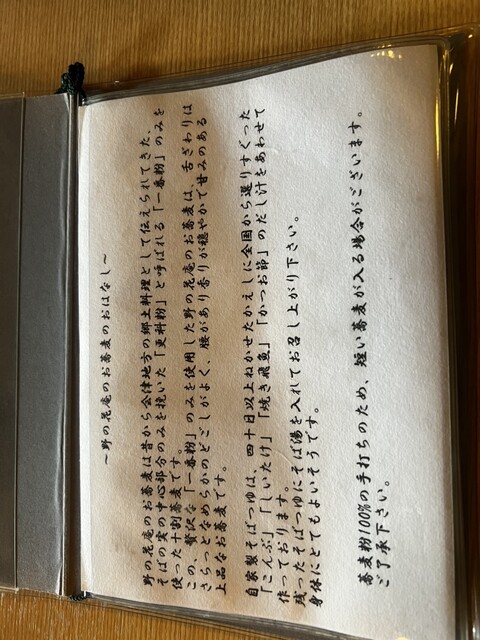 ～野の花庵のお蕎麦のおはなし～
野の花庵のお蕎麦は昔から会津地方の郷土料理として伝えられてきた、
そばの実の中心部分のみを挽いた「更科粉」と呼ばれる「一番粉」のみを
使った十割蕎麦です。
この、贅沢な「一番粉」のみを使用した野の花庵のお蕎麦は、舌ざわりは
さらっとなめらかのどごしがよく、腰があり香りが穏やかで甘みのある
上品なお蕎麦です。
自家製そばつゆは、四十日以上ねかせたかえしに全国から選りすぐった
「こんぶ」「しいたけ」「焼き飛魚」「かつお節」のだし汁をあわせて
作っております。
残ったそばつゆにそば湯を入れてお召し上がり下さい。
身体にとてもよいそうです。
蕎麦粉100%の手打ちのため、短い蕎麦が入る場合がございます。
ご了承下さい。